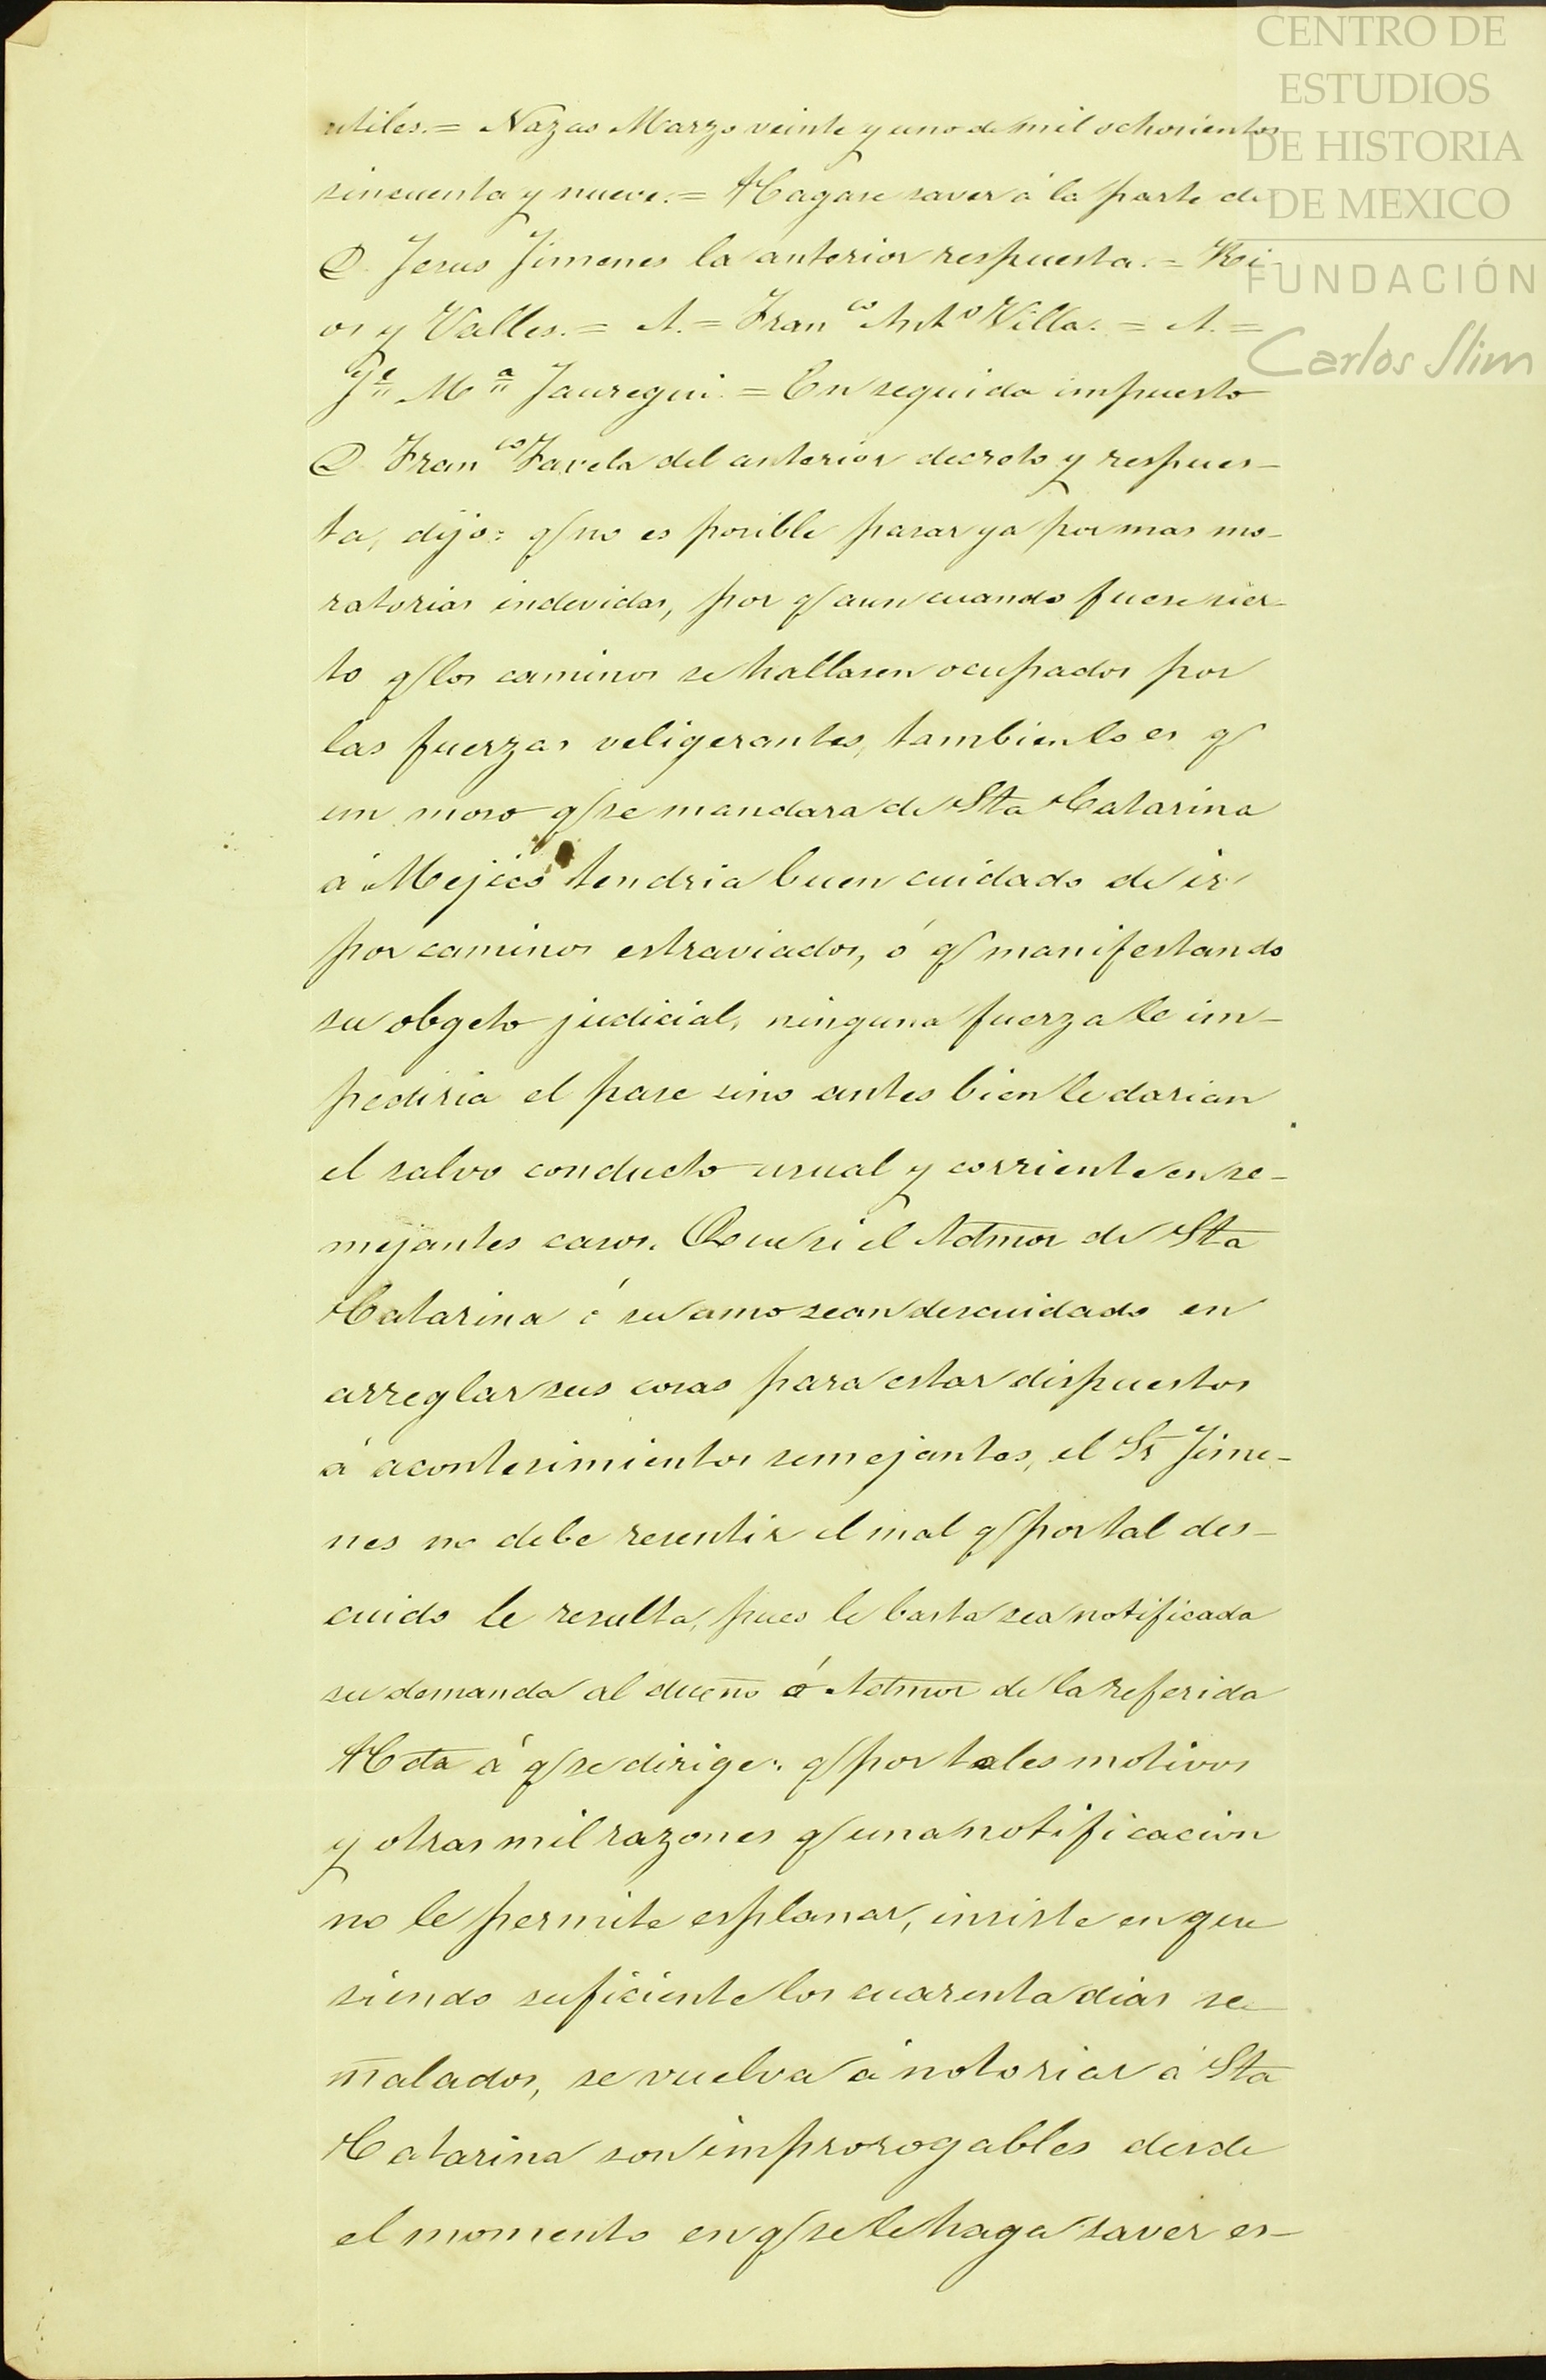 CENTRO DE
ESTUDIOS
DE HISTORIA
DE MEXICO
FUNDACIÓN
Carlos Slim
utiles.= Nazas Marzo veinte y uno de mil ochosientos
sincuenta y nueve.= Hagase saver á la parte de
D. Jesus Jimenes la anterior respuesta.= Ri-
os y Valles.= A.= Franco Anto Villa.= A.=
Je Ma Jauregui.= En seguida impuesto
D. Franco Favela del anterior decreto y respues-
ta, dijo: q no es posible pasar ya por mas mo-
ratorias indevidas, por q aun cuando fuese sier-
to q los caminos se hallasen ocupados por
las fuerzas veligerantes, tambien lo es q
un moso q se mandara de Sta Catarina
á Mejico tendria buen cuidado de ir
por caminos estraviados, ó q manifestando
su obgeto judicial, ninguna fuerza le im-
pediria el pase sino antes bien le darian
el salvo conducto usual y corriente en se-
mejantes casos. Que si el Admor de Sta
Catarina ó su amo sean descuidado en
arreglar sus cosas para estar dispuestos
á acontesimientos semejantes, el Sr Jime-
nes no debe resentir el mal q por tal des-
cuido le resulta, pues le basta sea notificada
su demanda al dueño ó Admor de la referida
Hda á q se dirige: q por tales motivos
y otras mil razones q una notificacion
no le permite esplanar, insiste en que
siendo suficiente los cuarenta dias se-
ñalados, se vuelva á notoriar á Sta
Catarina son improrogables desde
el momento en q se le haga saver es-